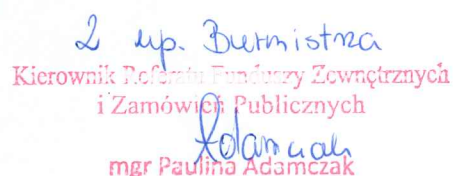 Z up. Burmistrza
Kierownik Referatu Funduszy Zewnętrznych
i Zamówień Publicznych
Adamczak
mgr Paulina Adamczak